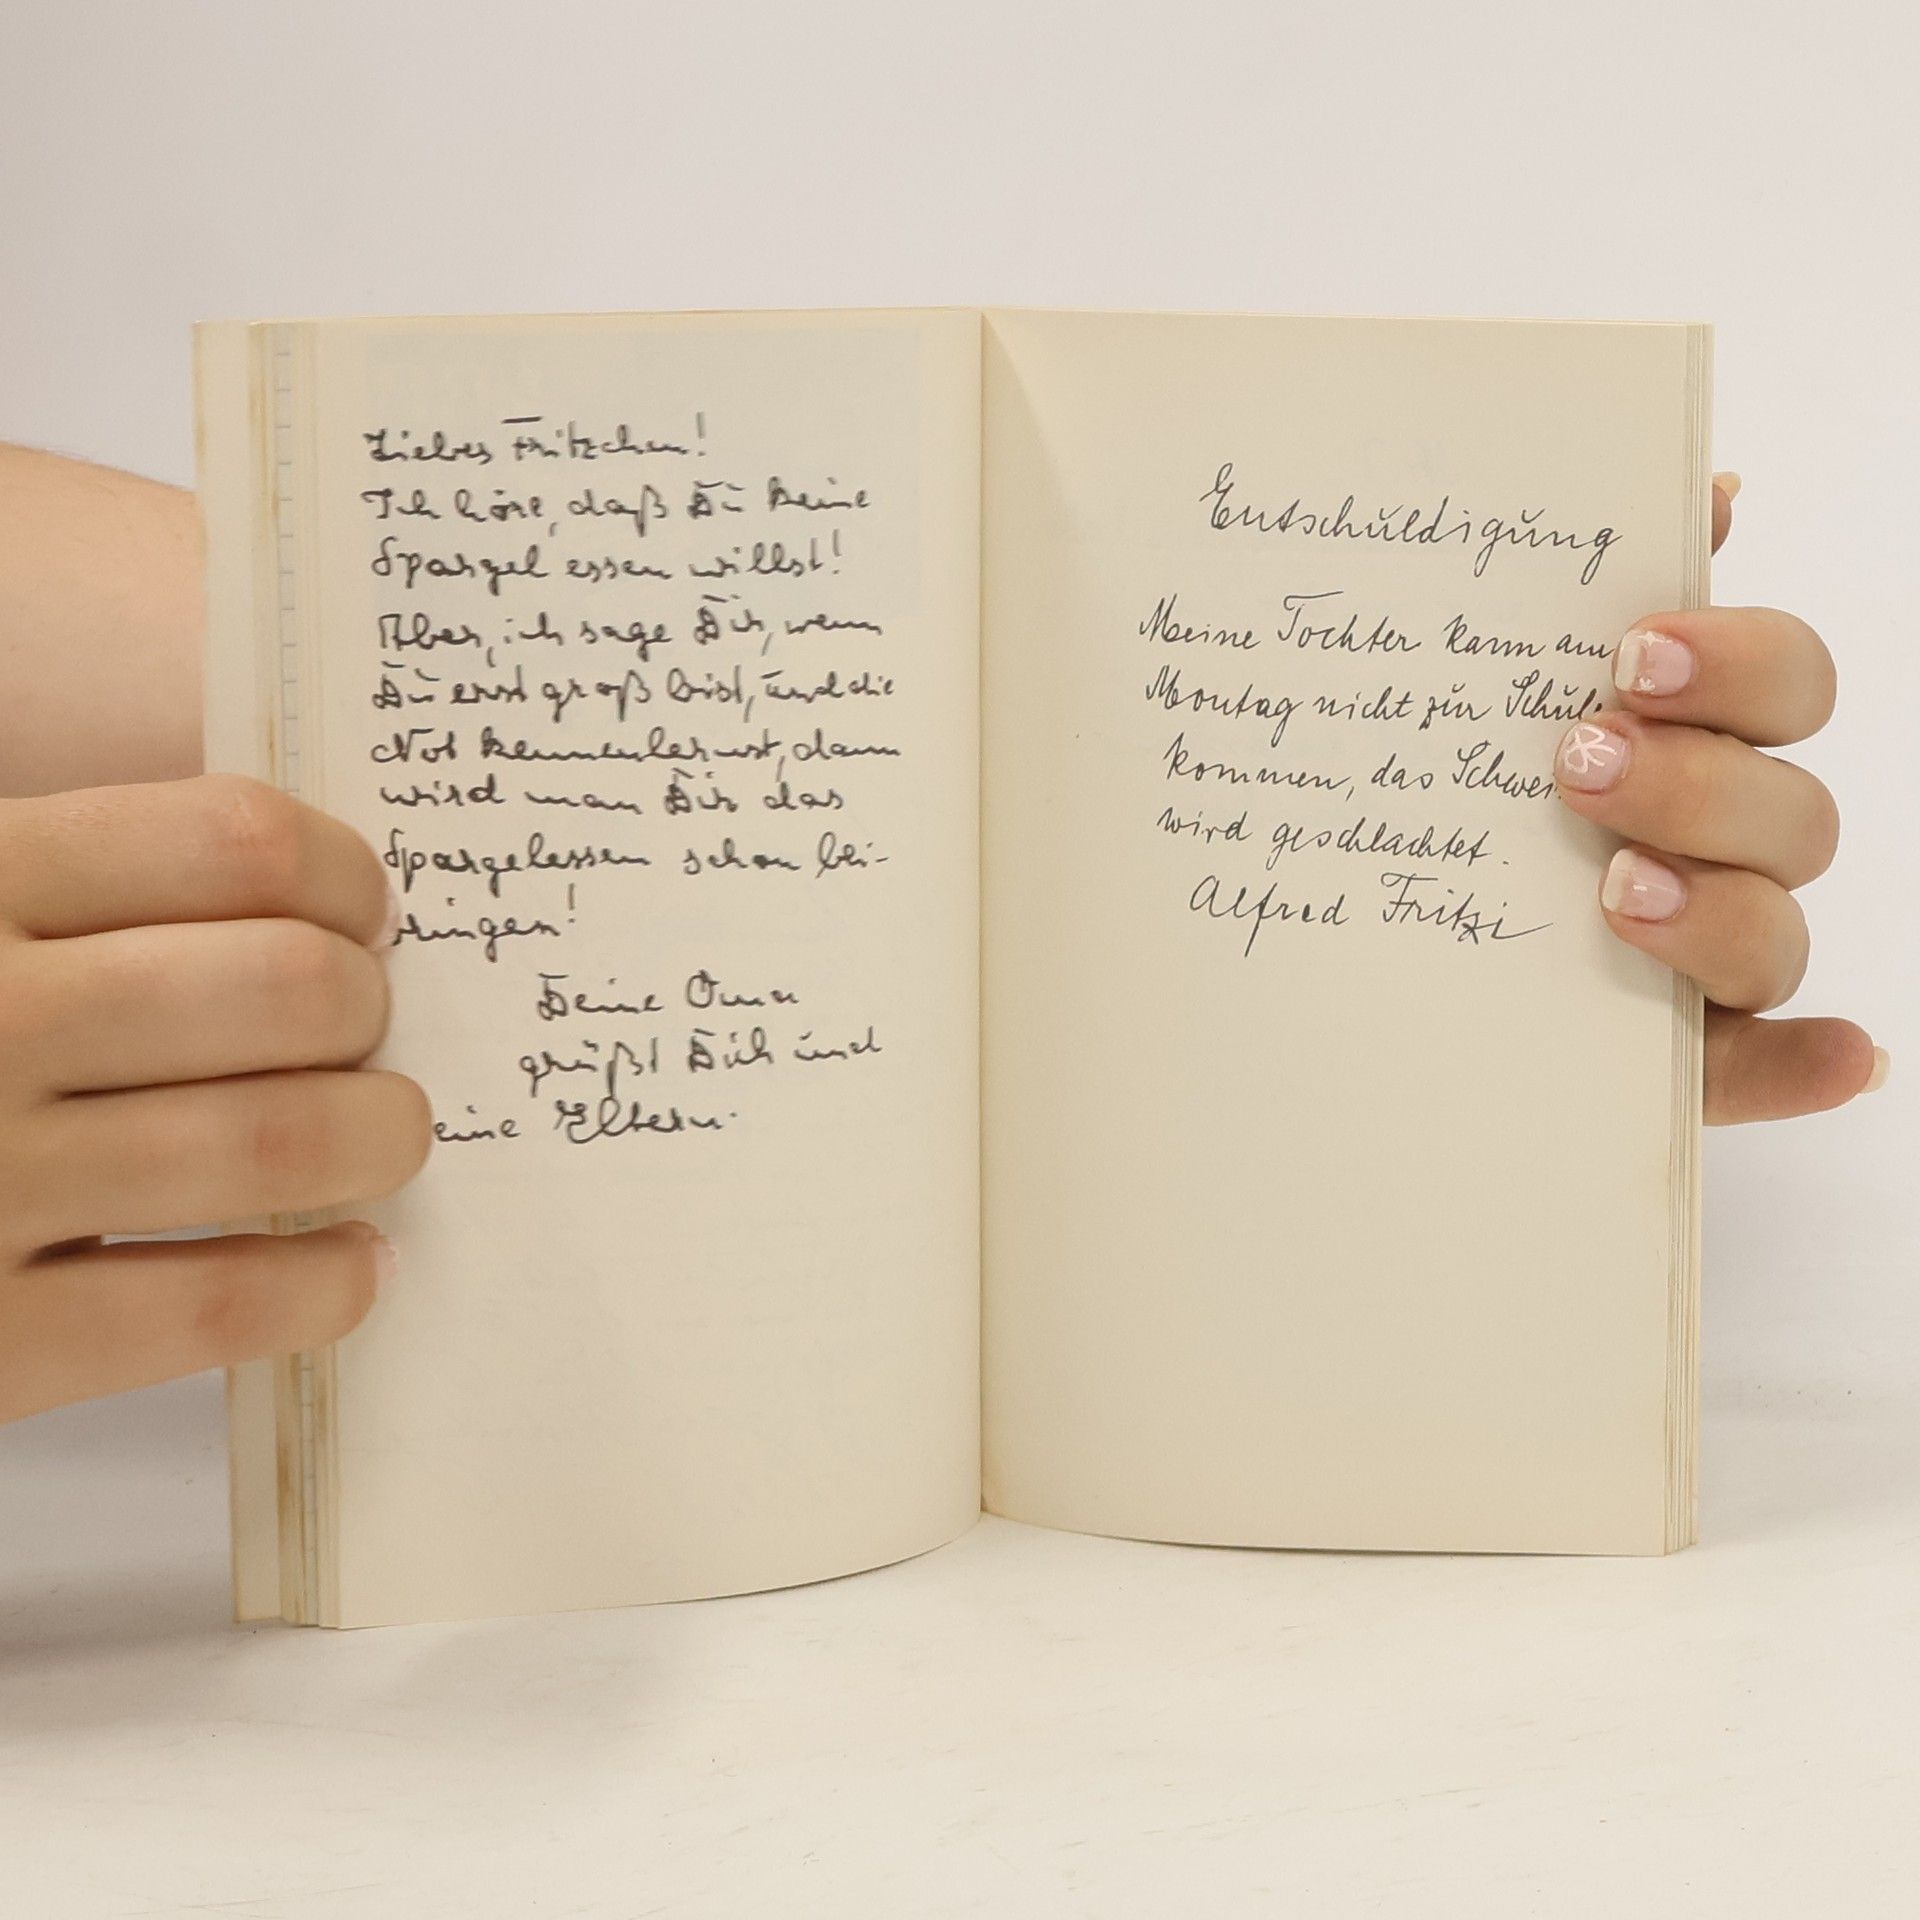 Liebes Fritzchen!
Ich höre, daß Du keine
Spargel essen willst!
Aber, ich sage Dir, wenn
Du erst groß bist, und die
Not kennenlernst, dann
wird man Dir das
Spargelessen schon bei-
bringen!
Deine Oma
grüßt Dich und
eine Eltern.
Entschuldigung
Meine Tochter kann am
Montag nicht zur Schul
kommen, das Schwei
wird geschlachtet.
Alfred Fritzi